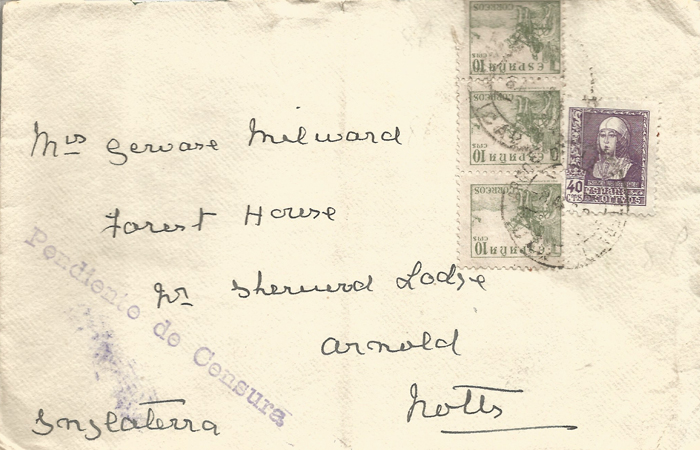 Mrs Gervase Milward
Forest House
nr Sherwood Lodge
Arnold
Notts
Inglaterra
Pendiente de Censura
10 CTS
ESPAÑA
CORREOS
10 CTS
ESPAÑA
CORREOS
10 CTS
ESPAÑA
40 CTS
ESPAÑA
CORREOS